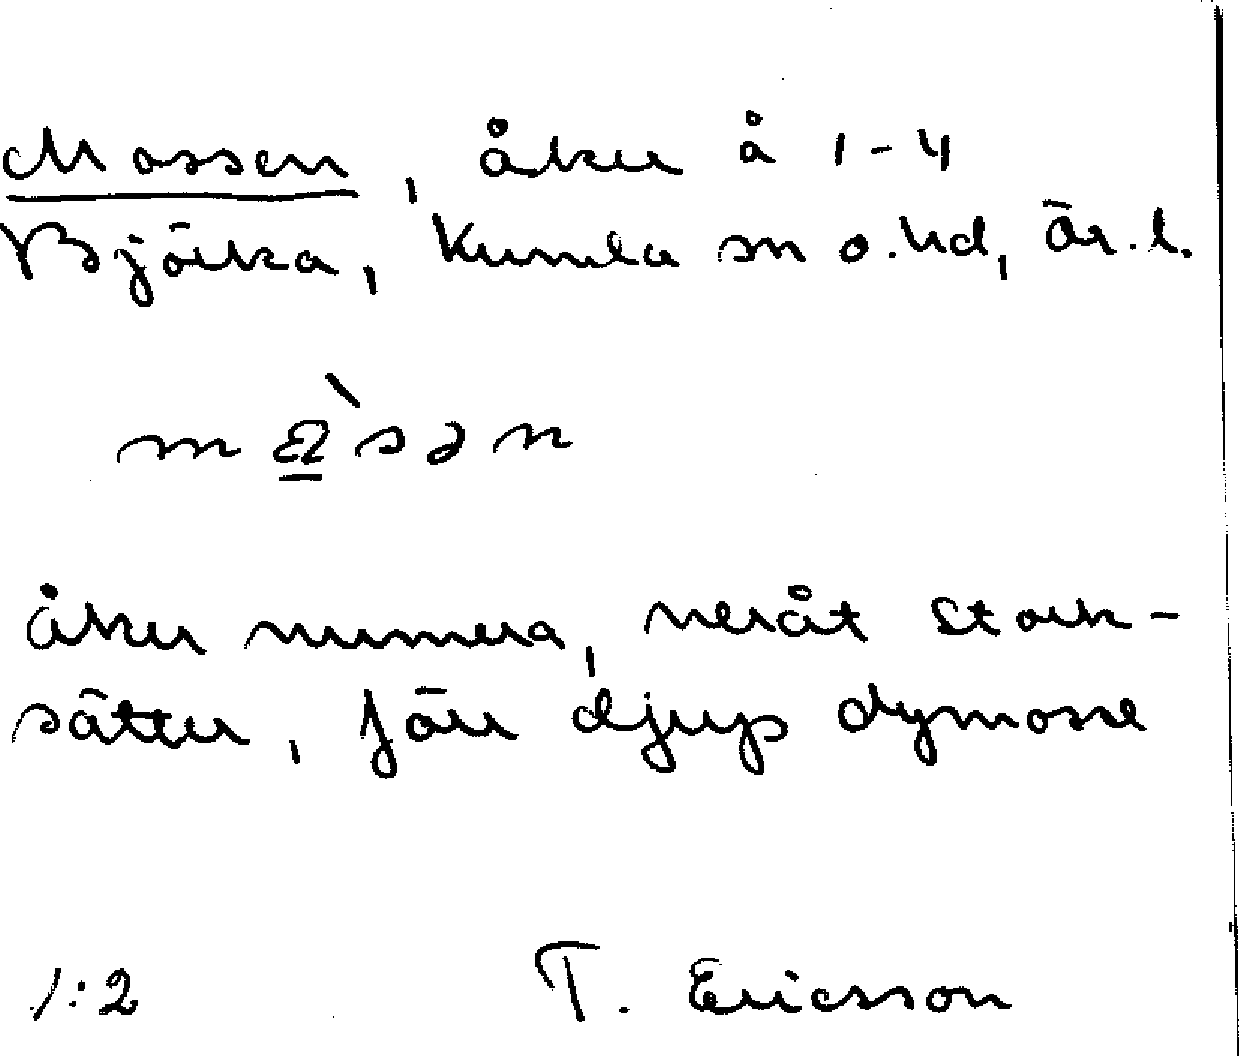 Mossen, åker å 1-4
Björka, Kumla sn o. hd, Ör. l.
åker numera, neråt Stork-
sätter, förr djup dymosse
1:2 T. Ericsson